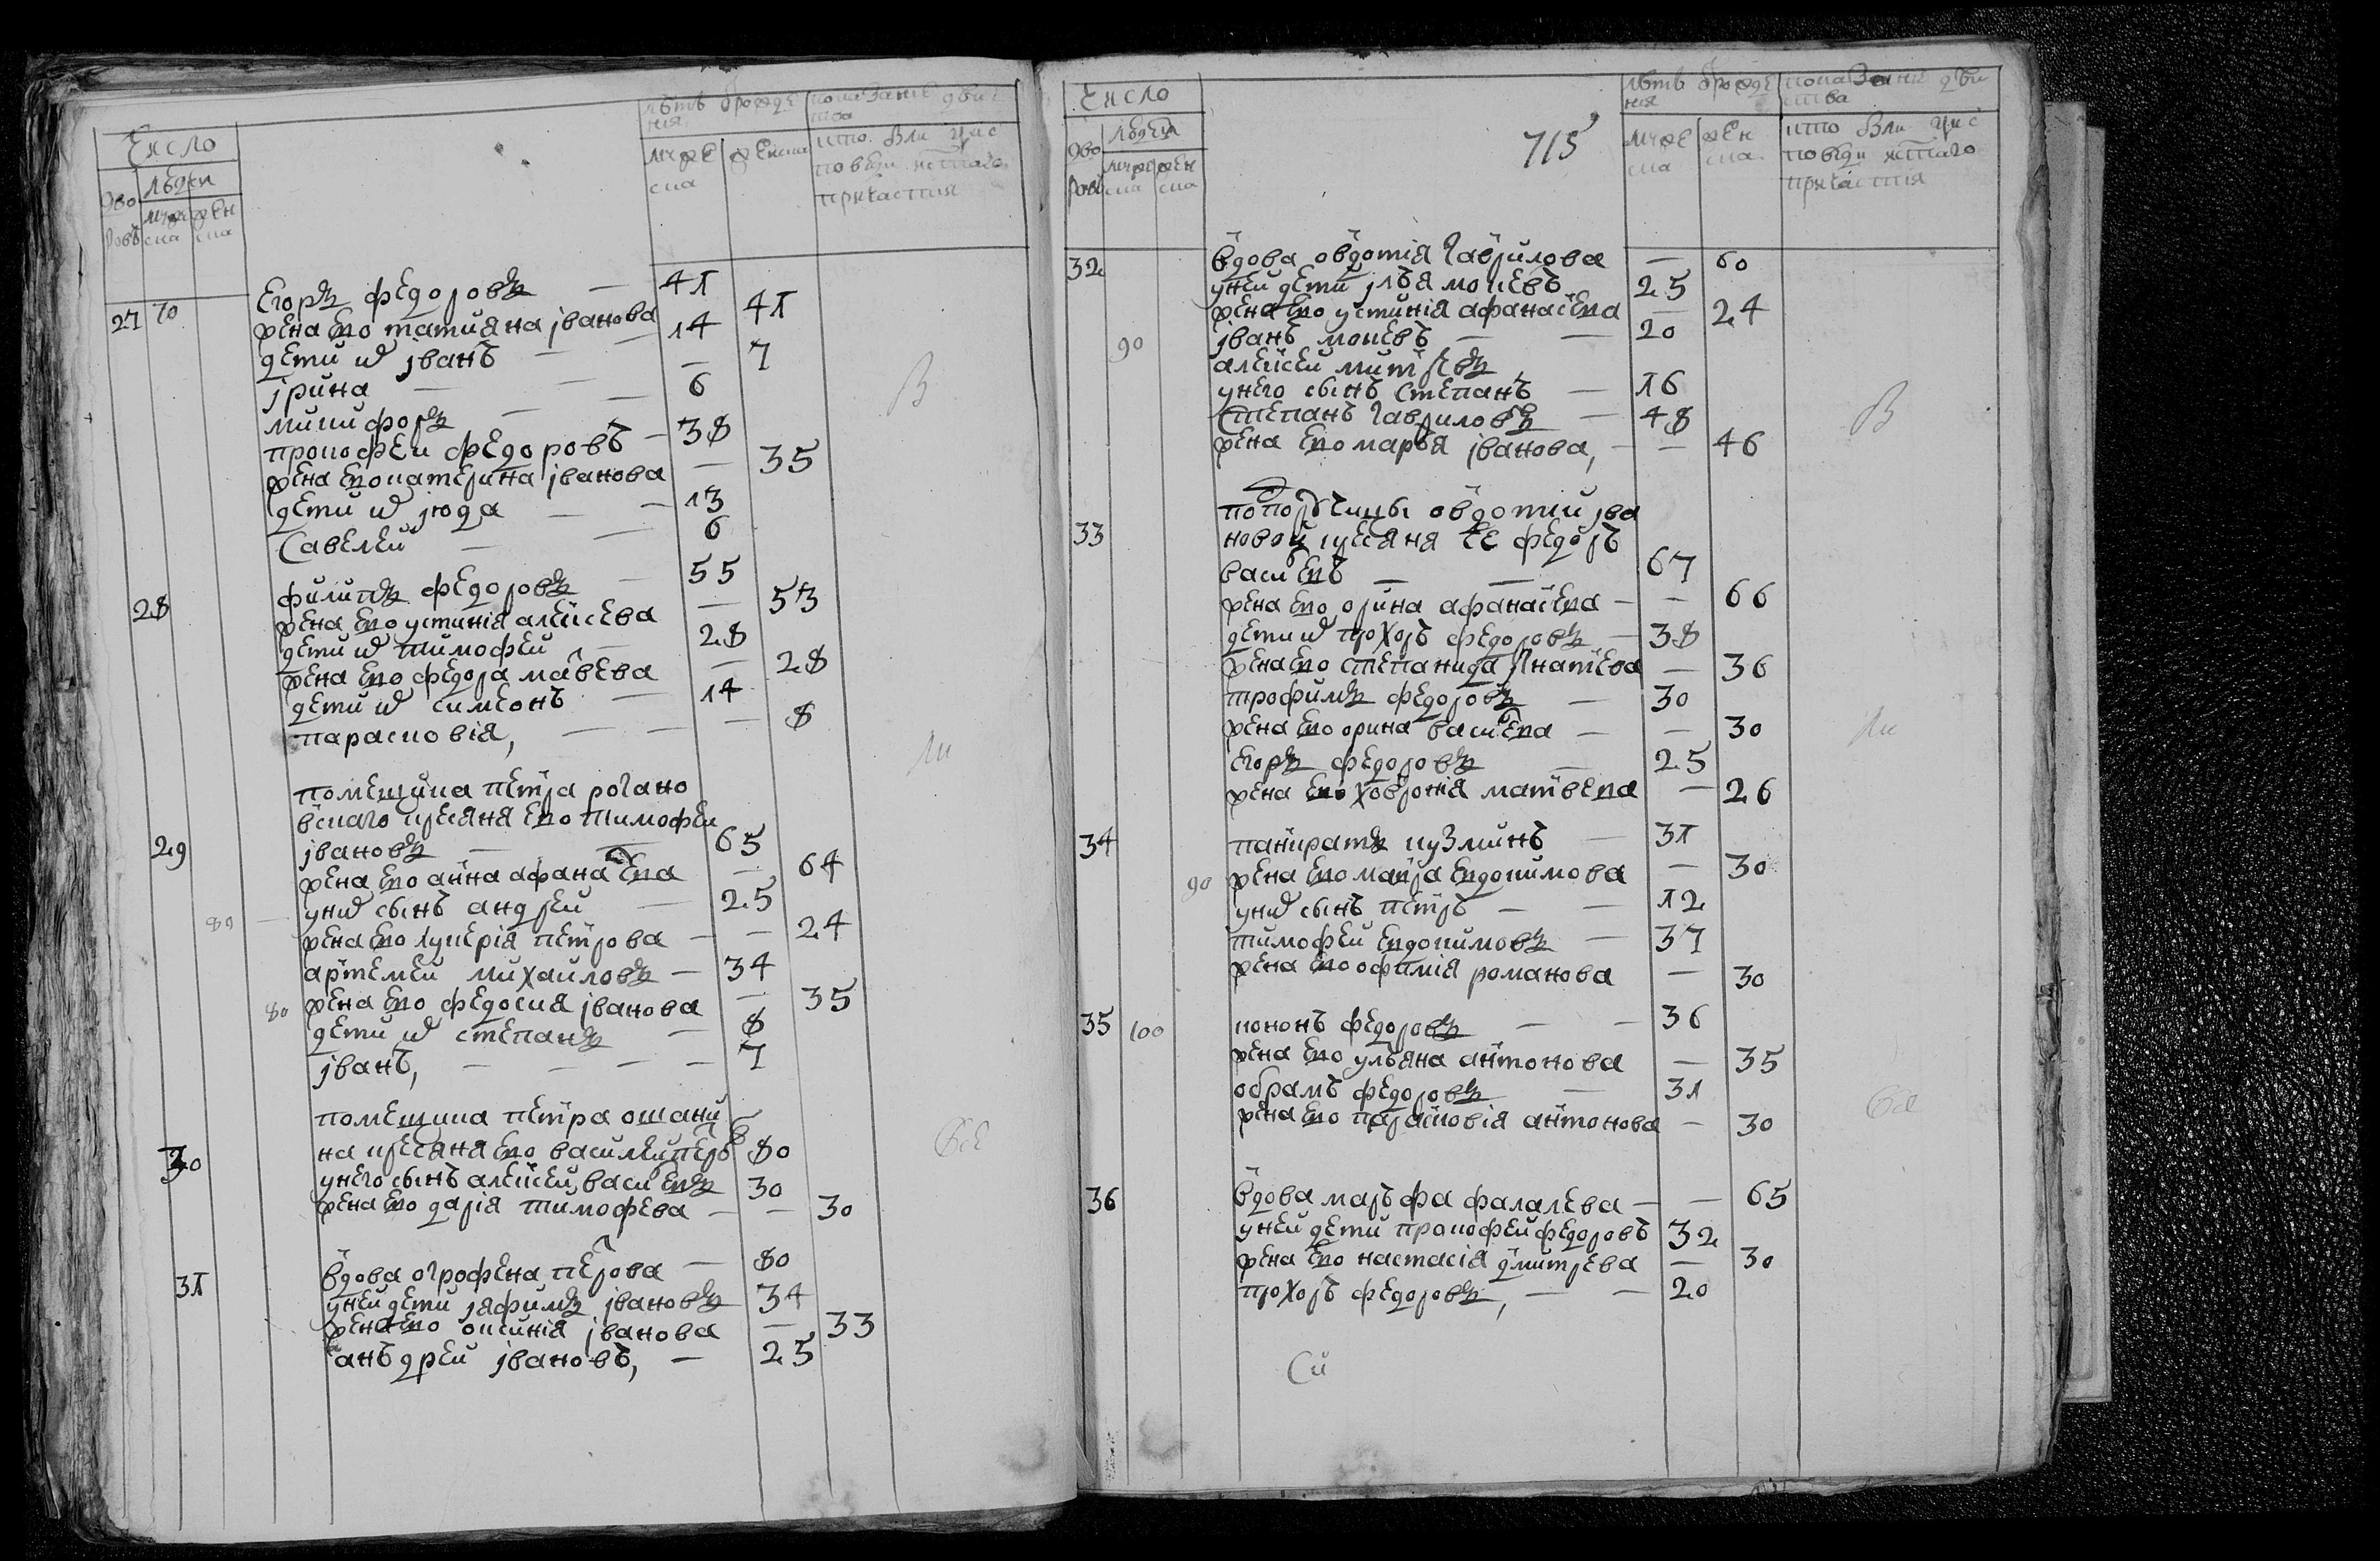 Число
дворовъ
людей
мужеска
женска
лѣтъ рождения
мужеска
женска
Егоръ федоровъ — 41
27 70 жена ево татияна јванова 41
дети их јванъ — 14
јрина — — 7
микифоръ — — 6
прокофеи федоровъ — 38
жена ево катерина јванова — 35
дети их јюда — 13
Савелеи — — 6
28 филипъ федоровъ — 55
жена ево устиния алексеева — 53
дети их тимофеи — 28
жена ево федора матвеева — 28
дети их симеонъ — 14
парасковия, — — — 8
помещика петра рогано
вскаго кресяня ево тимофеи
29 јвановъ — — 65
жена ево анна афанасева — 64
80 — у них сынъ андреи — 25
жена ево лукерия петрова — — 24
артемеи михаиловъ — 34
80 жена ево федосия јванова — 35
дети их степанъ — 8
јванъ, — — — — 7
помещика петра ошани
30 на кресяня ево василеи петровъ 80
у него сынъ алексеи васиевъ 30
жена ево дария тимофеева — — 30
31 вдова огрофена петрова — 80
у неи дети јяфимъ јвановъ 34
жена ево оксиния јванова — 33
анъдреи јвановъ, — 25
В
ли
все
715
Число
дворовъ
людей
мужеска
женска
лѣтъ рождения
мужеска
женска
показание действа
кто в ли числ
поведи и стаго
причастия
32 вдова овдотия гаврилова — 60
у неи дети јлья мокеевъ 25
жена ево устиния афанасева — 24
90 јванъ мокеевъ — — 20
алексеи митревъ
у него сынъ степанъ — 16
Степанъ гавриловъ — 48
жена ево марья јванова, — — 46
овдотии јва
33 новои кресяня ее федоръ
васиевъ — — 67
жена ево орина афанасева — — 66
дети их прохоръ федоровъ — 38
жена ево степанида јгнатева — 36
трофимъ федоровъ — 30
жена ево орина васиева — — 30
егоръ федоровъ — 25
жена ево ховрония матвеева — 26
34 панкратъ кузминъ — 31
90 жена ево мавра евдокимова — 30
у них сынъ петръ — — 12
тимофеи евдокимовъ — 37
жена ево офимия романова — 30
35 100 кононъ федоровъ — — 36
жена ево ульяна антонова — 35
обрамъ федоровъ — 31
жена ево парасковия антонова — 30
36 вдова марфа фалалева — — 65
у неи дети прокофеи федоровъ 32
жена ево настасия дмитрева — 30
прохоръ федоровъ, — — 20
В
ли
бы
Си